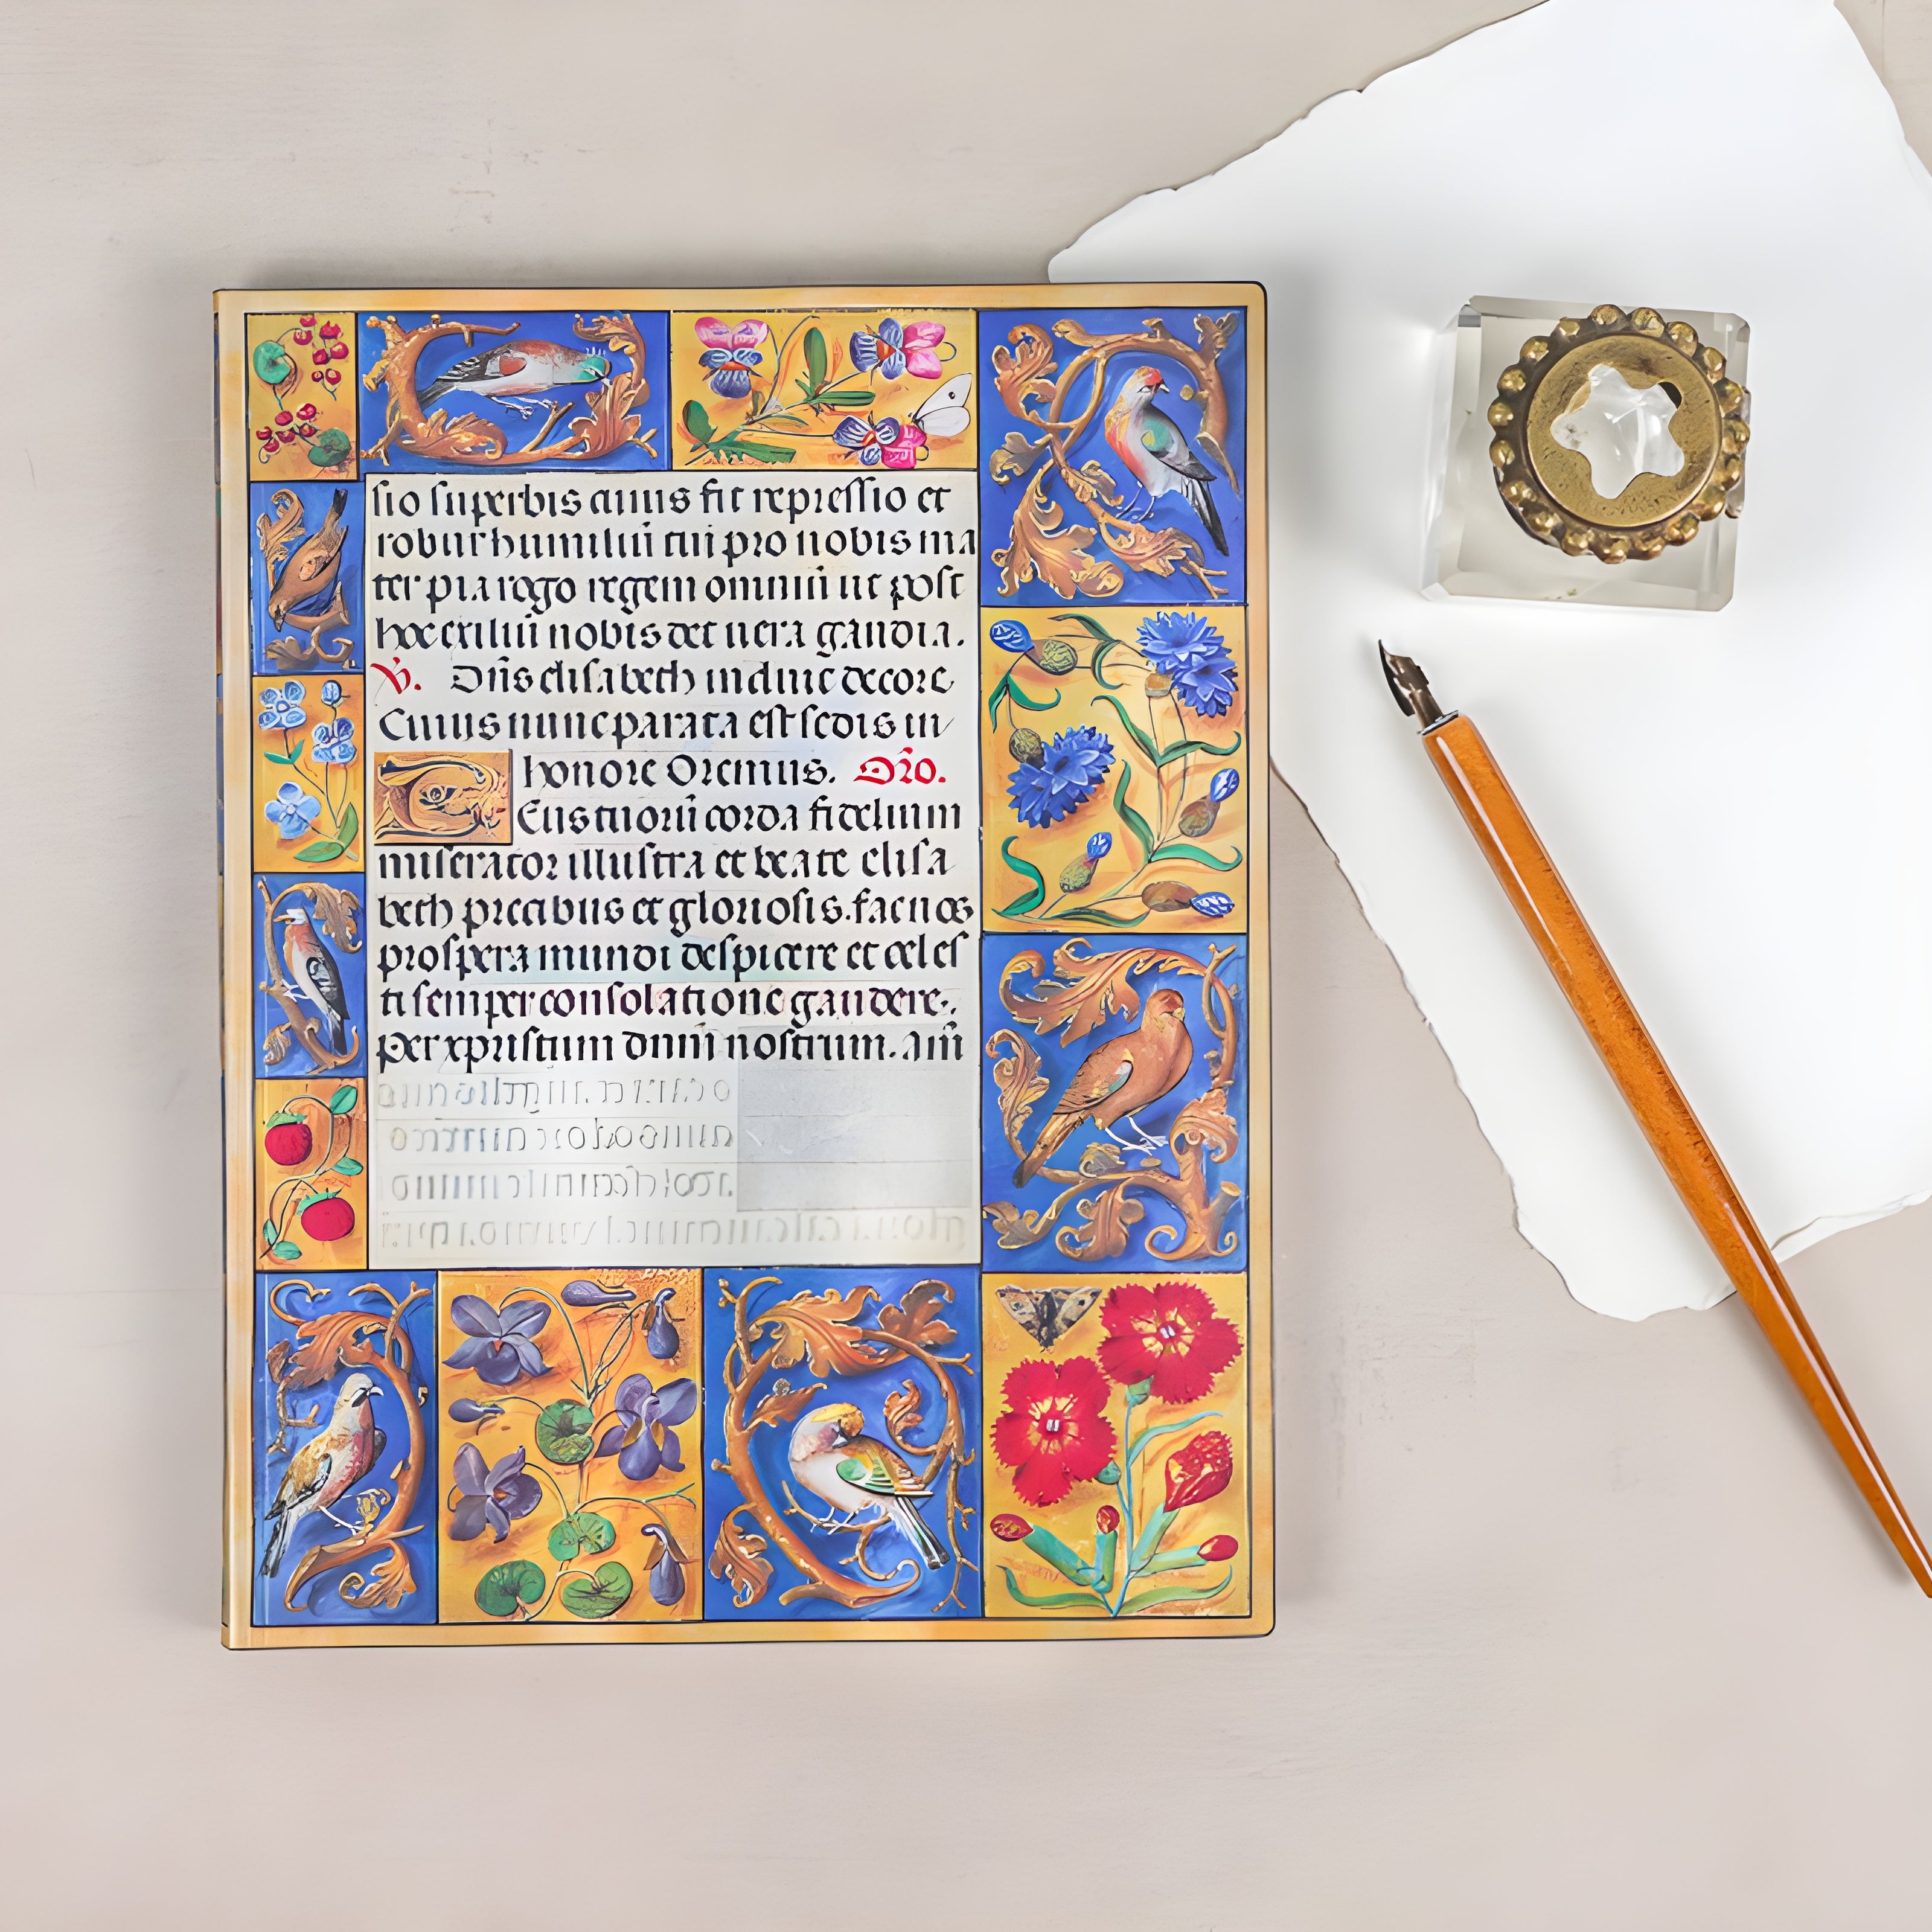 sio superbis cuius fit repressio et
robur humiliū tui pro nobis ma
ter pia rogo regem omniū ut post
hoc exiliū nobis det uera gaudia.
V. Dn̄s elisabeth induit decore
Cuius nunc parata est sedis in
honore Oremus. Or̄o.
Eus tuorū corda fidelium
miserator illustra et beate elisa
beth precibus et gloriosis. fac nos
prospera mundi despicere et celes
ti semper consolatione gaudere.
Per xpristum dnm̄ nostrum. am̄